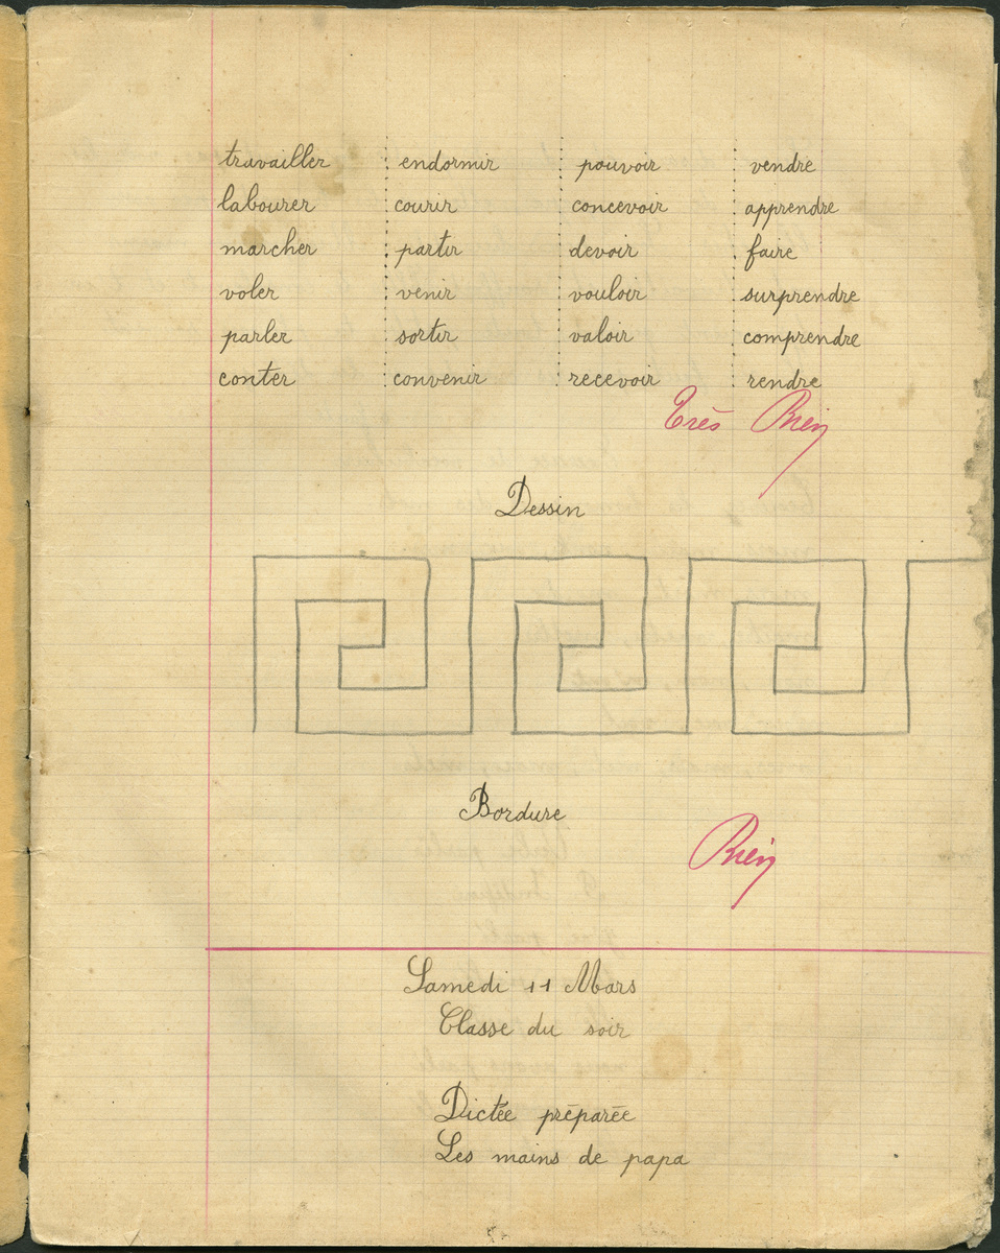 travailler endormir pouvoir vendre
labourer courir concevoir apprendre
marcher partir devoir faire
voler venir vouloir surprendre
parler sortir valoir comprendre
conter convenir recevoir rendre
Très Bien
Dessin
Bordure
Bien
Samedi 11 Mars
Classe du soir
Dictée préparée
Les mains de papa